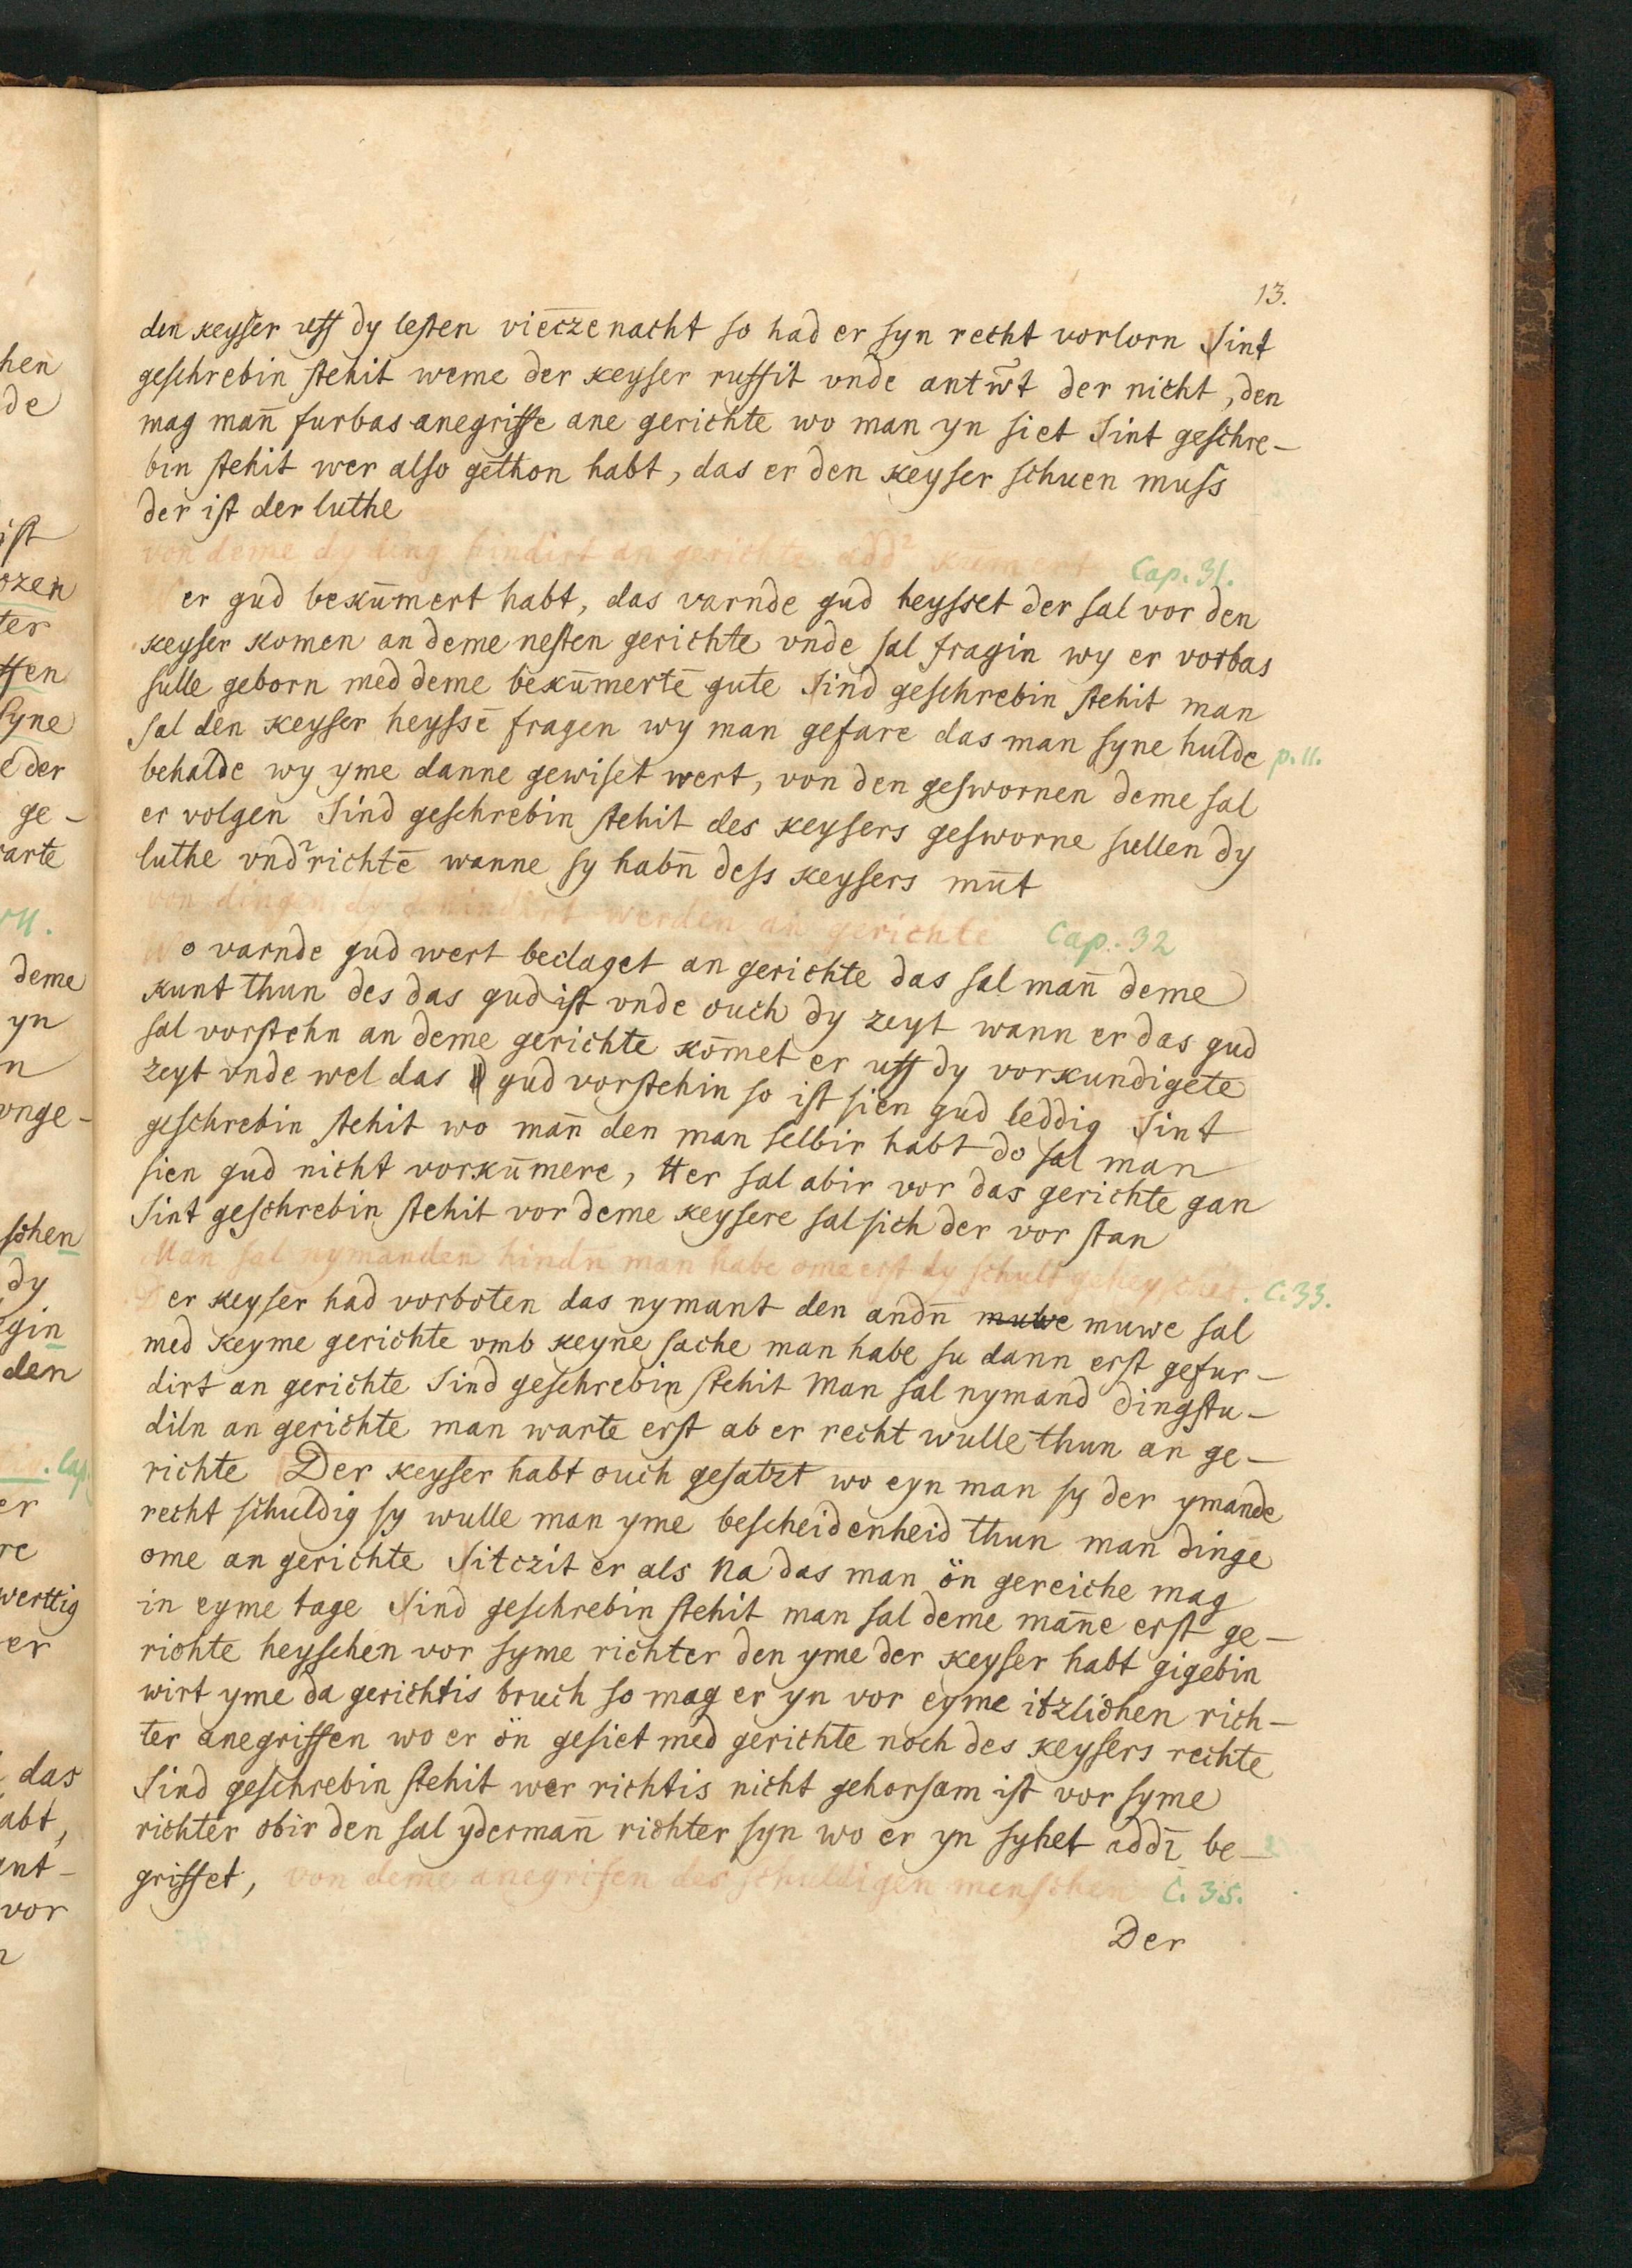 13.
den keyser uff dy lesten viec̄ze nacht so had er syn recht vorlorn Sint
geschrebin stehit weme der keyser ruffit vnde antw̃t der nicht, den
mag man̄ furbas anegriffe ane gerichte wo man yn siet Sint geschre-
bin stehit wer also gethon habt, das er den keyser schuen muss
der ist der luthe
von deme dy ding hindirt an gerichte add² kum̄ert Cap. 31.
er gud bekum̄ert habt, das varnde gud heysset der sal vor den
keyser komen an deme nesten gerichte vnde sal fragin wy er vorbas
sulle geborn med deme bekum̄ertē gute Sind geschrebin stehit man
sal den keyser heyssē fragen wy man gefare das man syne hulde p. 11.
behalde wy yme danne gewiset wert, von den geswornen deme sal
er volgen Sind geschrebin stehit des keysers gesworne sullen dy
luthe vnd²richtē wanne sy habn̄ dess keysers mūt
von dingen dy gehindirt werden an gerichte Cap. 32
Wo varnde gud wert beclaget an gerichte das sal man̄ deme
kunt thun des das gud ist vnde ouch dy zeyt wann er das gud
sal vorstehn an deme gerichte kom̄et er uff dy vorkundigete
zeyt vnde wel das gud vorstehin so ist sien gud leddig Sint
geschrebin stehit wo man̄ den man selbir habt do sal man
sien gud nicht vorkum̄ere, er sal abir vor das gerichte gan
Sint geschrebin stehit vor deme keysere sal sich der vor stan
Man sal nymanden hindn̄ man habe ome erst dy schult geheyschet. C. 33.
Der keyser had vorboten das nymant den andn̄ muwe muwe sal
med keyme gerichte vmb keyne sache man habe su dann erst gefur-
dirt an gerichte Sind geschrebin stehit Man sal nymand dingstu-
diln an gerichte man warte erst ab er recht wulle thun an ge-
richte Der keyser habt ouch gesatzt wo eyn man sy der ymande
recht schuldig sy wulle man yme bescheidenheid thun man dinge
ome an gerichte Sitczit er als Na das man ön gereiche mag
in eyme tage Sind geschrebin stehit man sal deme man̄e erst ge-
richte heyschen vor syme richter den yme der keyser habt gigebin
wirt yme da gerichtis bruch so mag er yn vor eyme itzlichen rich-
ter anegriffen wo er ön gesiet med gerichte noch des keysers rechte
Sind geschrebin stehit wer richtis nicht gehorsam ist vor syme
richter obir den sal yderman̄ richter syn wo er yn syhet addī be-
griffet, von deme anegrifen des schuldigen menschen C. 35.
Der